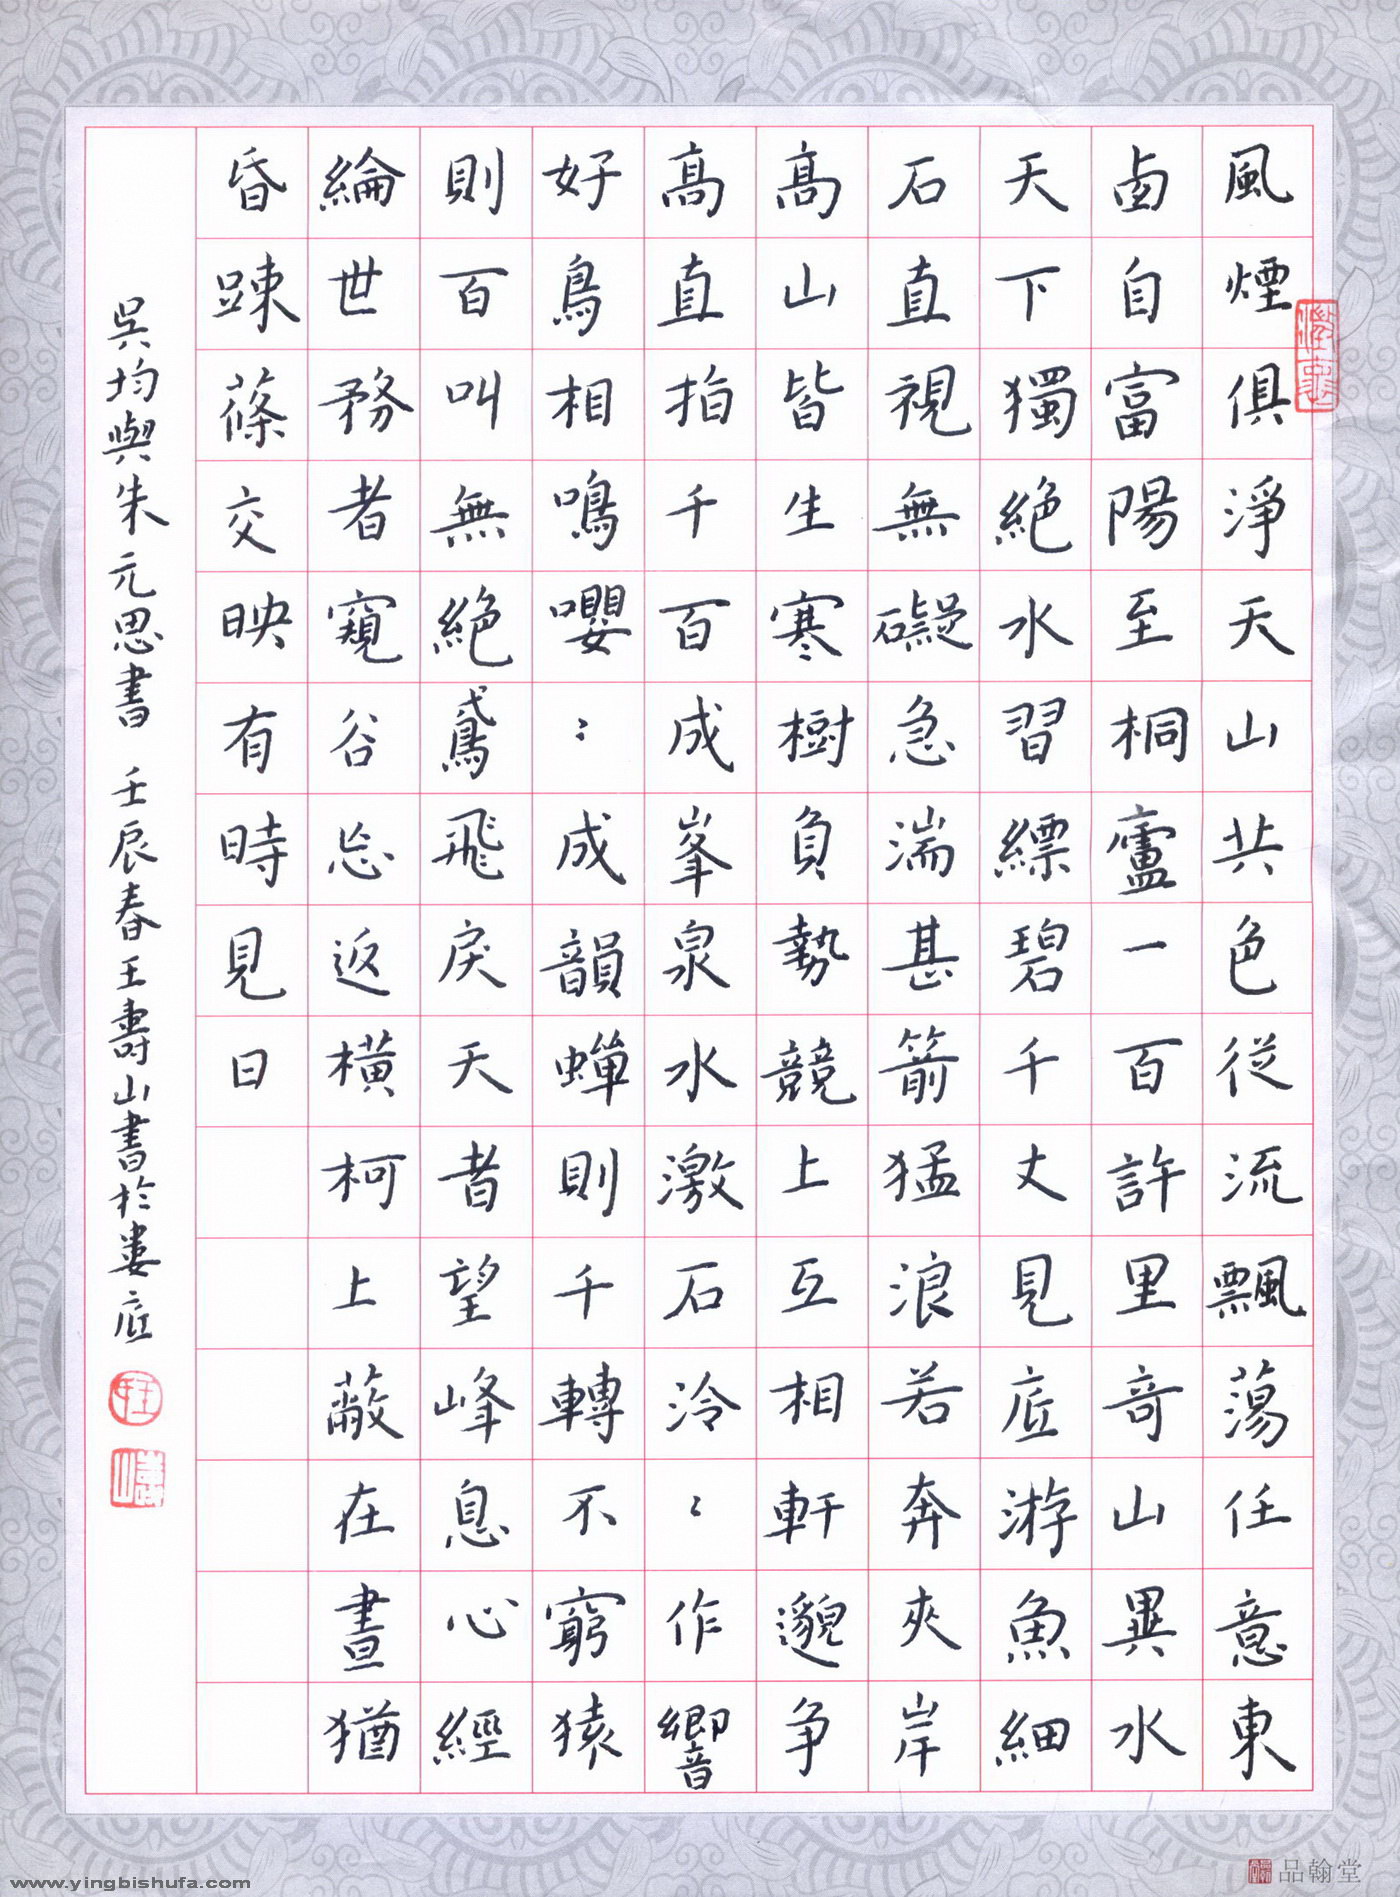 風煙俱淨天山共色從流飄蕩任意東
卥自富陽至桐廬一百許里奇山異水
天下獨絕水習縹碧千丈見底游魚細
石直視無礙急湍甚箭猛浪若奔夾岸
高山皆生寒樹負勢競上互相軒邈爭
高直指千百成峯泉水激石泠〻作響
好鳥相鳴嚶〻成韻蟬則千轉不窮猿
則百叫無絕鳶飛戾天者望峰息心經
綸世務者窺谷忘返橫柯上蔽在晝猶
昏踈蓧交映有時見日
吳均與朱元思書 壬辰春王壽山書於婁底
壽山
www.yingbishufa.com
品翰堂